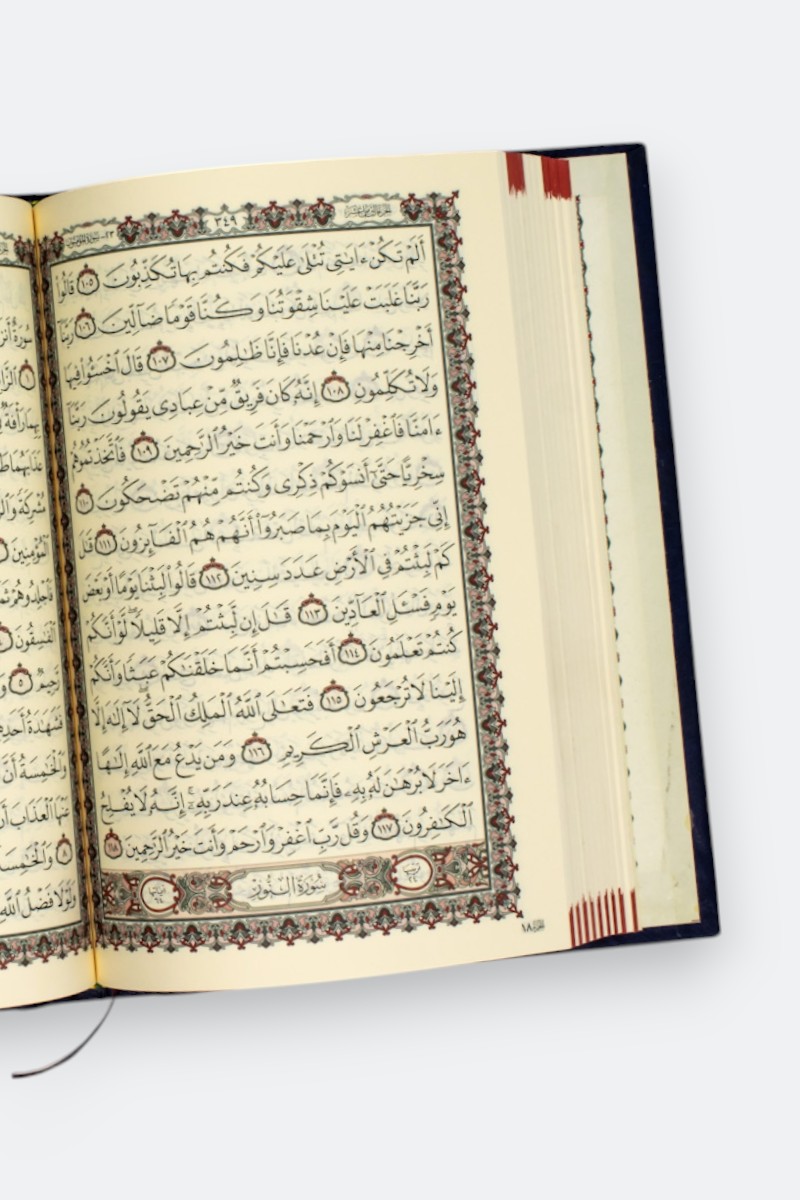 ٢٣- سورة المؤمنون
٣٤٩
الجزء الثامن عشر
أَلَمْ تَكُنْ ءَايَٰتِى تُتْلَىٰ عَلَيْكُمْ فَكُنتُم بِهَا تُكَذِّبُونَ ١٠٥ قَالُوا۟
رَبَّنَا غَلَبَتْ عَلَيْنَا شِقْوَتُنَا وَكُنَّا قَوْمًا ضَآلِّينَ ١٠٦ رَبَّنَآ
أَخْرِجْنَا مِنْهَا فَإِنْ عُدْنَا فَإِنَّا ظَٰلِمُونَ ١٠٧ قَالَ ٱخْسَـُٔوا۟ فِيهَا
وَلَا تُكَلِّمُونِ ١٠٨ إِنَّهُۥ كَانَ فَرِيقٌ مِّنْ عِبَادِى يَقُولُونَ رَبَّنَآ
ءَامَنَّا فَٱغْفِرْ لَنَا وَٱرْحَمْنَا وَأَنتَ خَيْرُ ٱلرَّٰحِمِينَ ١٠٩ فَٱتَّخَذْتُمُوهُمْ
سِخْرِيًّا حَتَّىٰٓ أَنسَوْكُمْ ذِكْرِى وَكُنتُم مِّنْهُمْ تَضْحَكُونَ ١١٠
إِنِّى جَزَيْتُهُمُ ٱلْيَوْمَ بِمَا صَبَرُوٓا۟ أَنَّهُمْ هُمُ ٱلْفَآئِزُونَ ١١١ قَٰلَ
كَمْ لَبِثْتُمْ فِى ٱلْأَرْضِ عَدَدَ سِنِينَ ١١٢ قَالُوا۟ لَبِثْنَا يَوْمًا أَوْ بَعْضَ
يَوْمٍ فَسْـَٔلِ ٱلْعَآدِّينَ ١١٣ قَٰلَ إِن لَّبِثْتُمْ إِلَّا قَلِيلًا ۖ لَّوْ أَنَّكُمْ
كُنتُمْ تَعْلَمُونَ ١١٤ أَفَحَسِبْتُمْ أَنَّمَا خَلَقْنَٰكُمْ عَبَثًا وَأَنَّكُمْ
إِلَيْنَا لَا تُرْجَعُونَ ١١٥ فَتَعَٰلَى ٱللَّهُ ٱلْمَلِكُ ٱلْحَقُّ ۖ لَآ إِلَٰهَ إِلَّا
هُوَ رَبُّ ٱلْعَرْشِ ٱلْكَرِيمِ ١١٦ وَمَن يَدْعُ مَعَ ٱللَّهِ إِلَٰهًا
ءَاخَرَ لَا بُرْهَٰنَ لَهُۥ بِهِۦ فَإِنَّمَا حِسَابُهُۥ عِندَ رَبِّهِۦٓ ۚ إِنَّهُۥ لَا يُفْلِحُ
ٱلْكَٰفِرُونَ ١١٧ وَقُل رَّبِّ ٱغْفِرْ وَٱرْحَمْ وَأَنتَ خَيْرُ ٱلرَّٰحِمِينَ ١١٨
سُورَةُ ٱلنُّورِ
الجزء ١٨
سُورَةٌ أَنزَ
١
عَذَابَهُمَا
ٱلْمُؤْمِنِينَ
فَٱجْلِدُوهُمْ
ٱلْفَٰسِقُونَ
رَّحِيمٌ ٥
فَشَهَٰدَةُ أَحَدِهِ
وَٱلْخَٰمِسَةُ أَنَّ
عَنْهَا ٱلْعَذَابَ أَن
٨ وَٱلْخَٰمِسَةَ
وَلَوْلَا فَضْلُ ٱللَّهِ